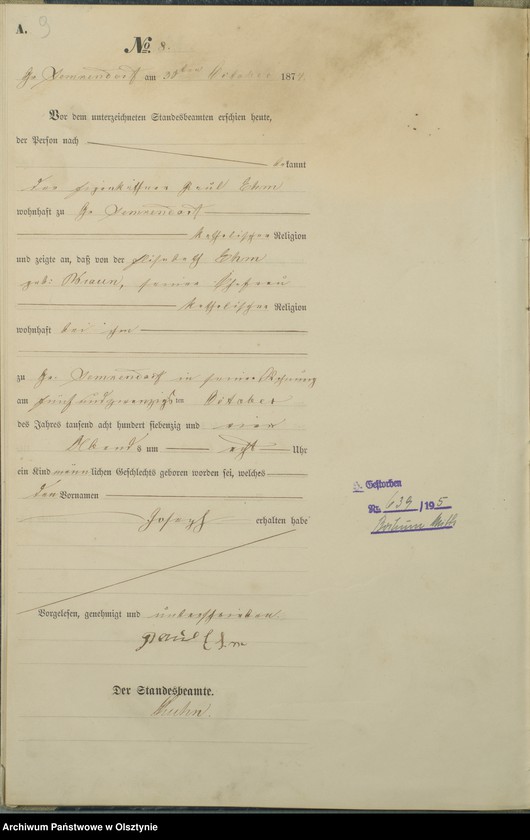 A. 9
No 8.
am 31ten October 1874.
Vor dem unterzeichneten Standesbeamten erschien heute,
der Person nach
bekannt
der Eigenkäthner Paul Ehm
wohnhaft zu Gr Lemkendorf
katholischer Religion
und zeigte an, daß von der Elisabeth Ehm
geb: Braun, seiner Ehefrau
katholischer Religion
wohnhaft bei ihm
zu Gr. Lemkendorf in seiner Wohnung
am fünf und zwanzigsten October
des Jahres tausend acht hundert siebenzig und vier
Abends um acht Uhr
ein Kind männlichen Geschlechts geboren worden sei, welches
den Vornamen
Joseph erhalten habe
Vorgelesen, genehmigt und unterschrieben
Paul Ehm
Der Standesbeamte.
Gestorben
Nr. 639 / 195
Bochum Mitte
Archiwum Państwowe w Olsztynie